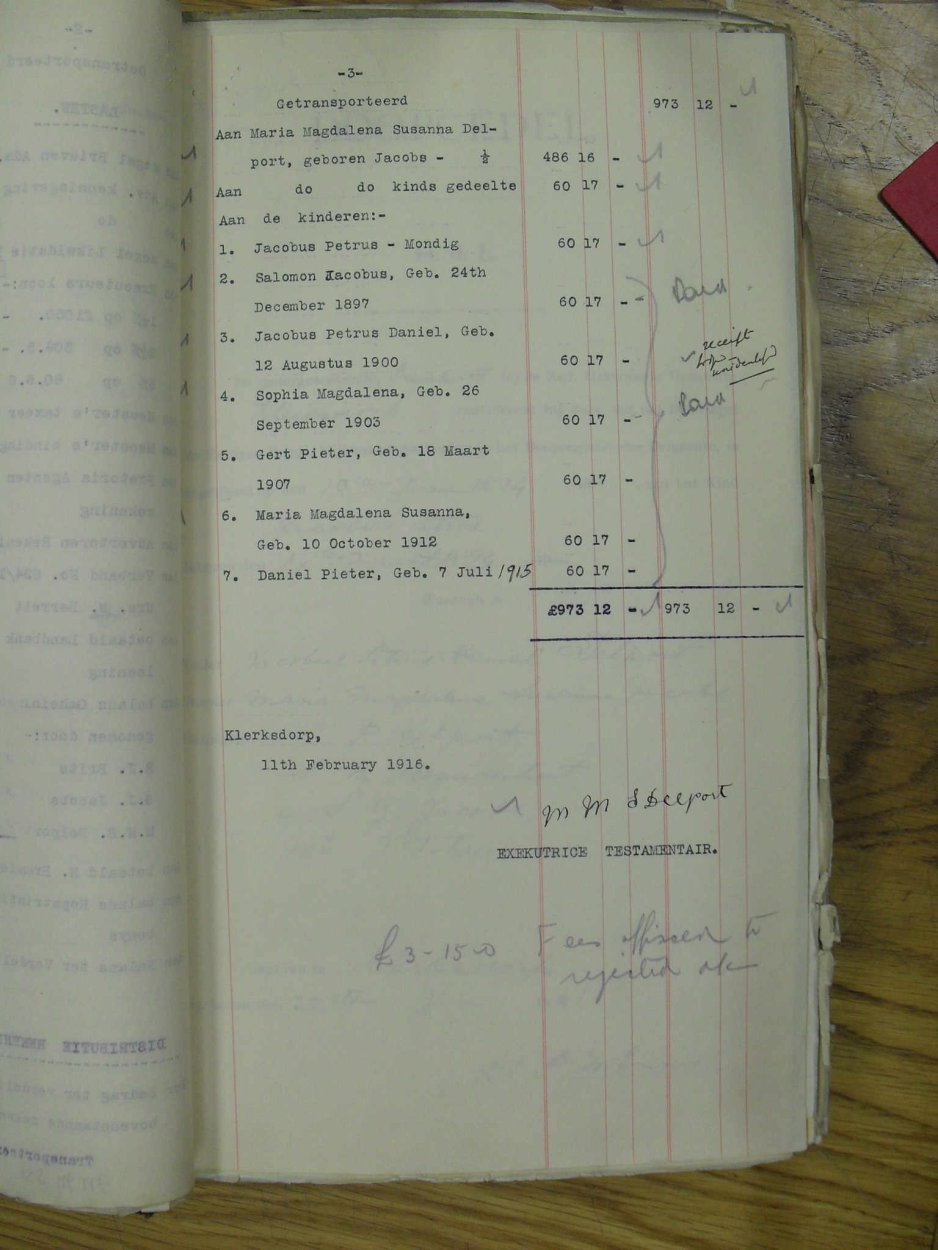 -3-
Getransporteerd 973 12 -
Aan Maria Magdalena Susanna Del-
port, geboren Jacobs - ½ 486 16 -
Aan do do kinds gedeelte 60 17 -
Aan de kinderen:-
1. Jacobus Petrus - Mondig 60 17 -
2. Salomon Jacobus, Geb. 24th
December 1897 60 17 - - Paid
3. Jacobus Petrus Daniel, Geb. receipt
12 Augustus 1900 60 17 -
4. Sophia Magdalena, Geb. 26
September 1903 60 17 - Paid
5. Gert Pieter, Geb. 18 Maart
1907 60 17 -
6. Maria Magdalena Susanna,
Geb. 10 October 1912 60 17 -
7. Daniel Pieter, Geb. 7 Juli 1915 60 17 -
£973 12 - 973 12 -
Klerksdorp,
11th February 1916.
M M S Delport
EXEKUTRICE TESTAMENTAIR.
£3-15-0 Fees affixed to
rejected a/c